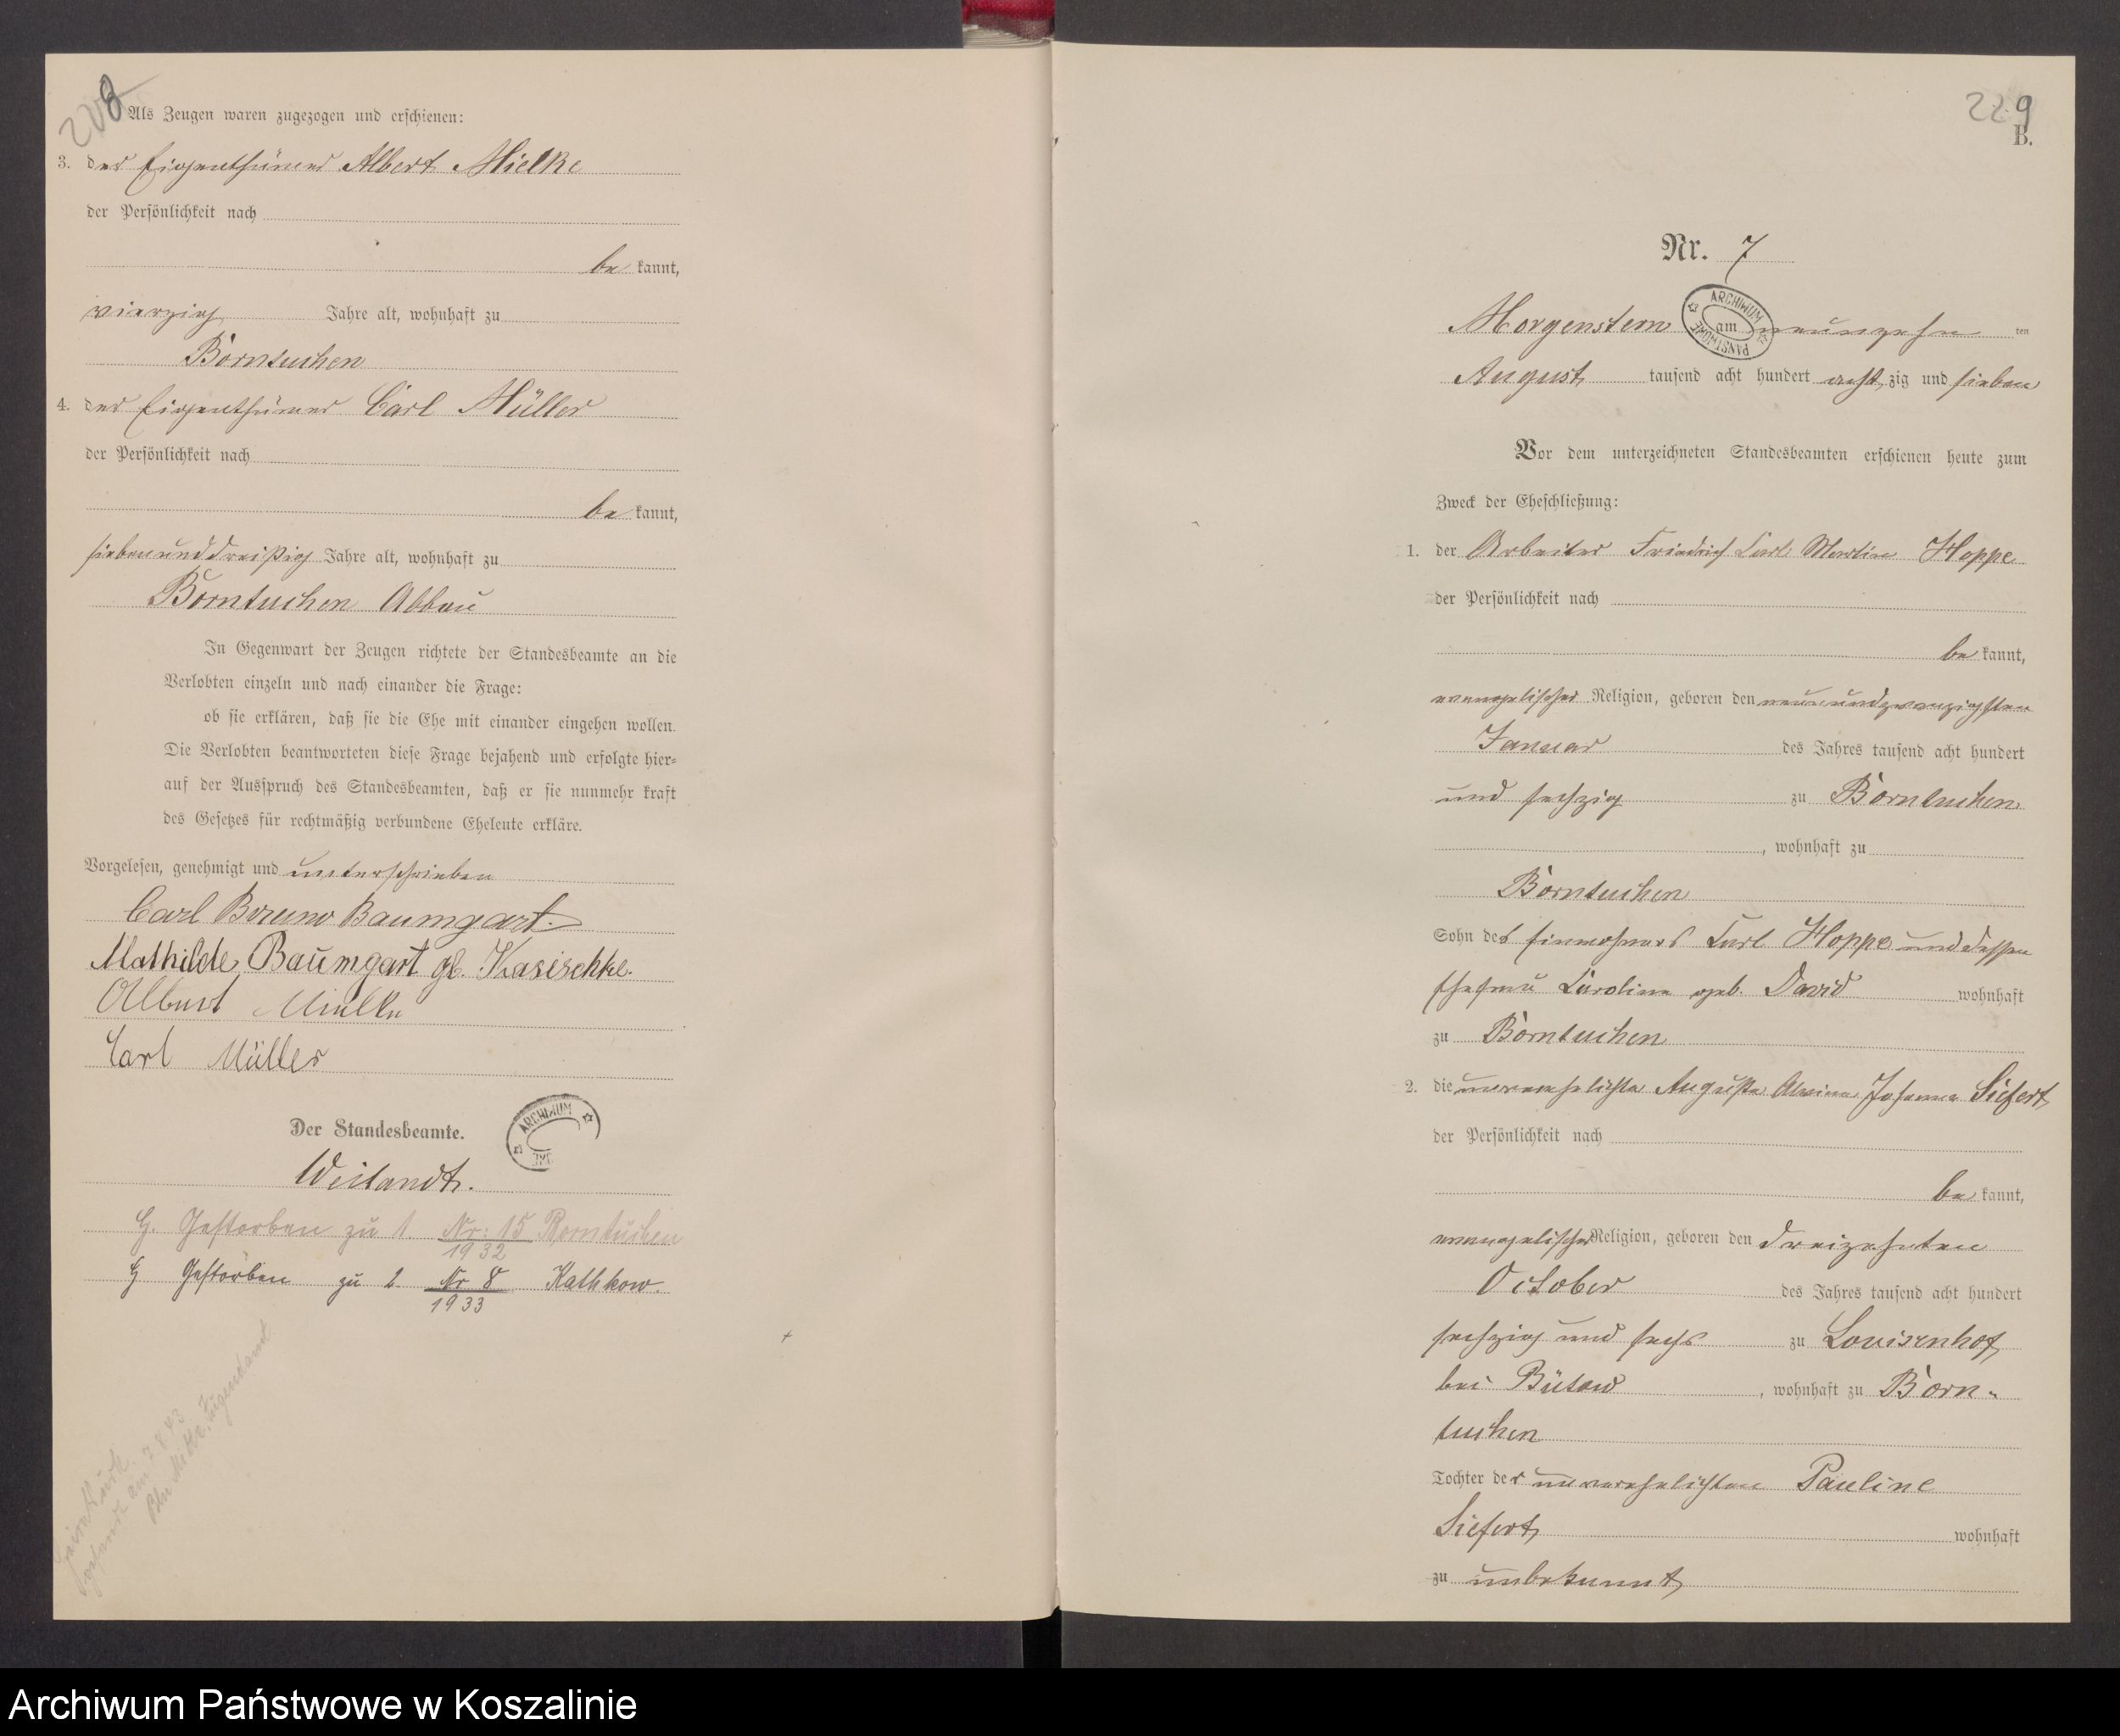 208
Als Zeugen waren zugezogen und erschienen:
3. der Eigenthümer Albert Mielke
der Persönlichkeit nach
be kannt,
vierzig Jahre alt, wohnhaft zu
Borntuchen
4. der Eigenthümer Carl Müller
der Persönlichkeit nach
be kannt,
siebenunddreißig Jahre alt, wohnhaft zu
Borntuchen Abbau
In Gegenwart der Zeugen richtete der Standesbeamte an die
Verlobten einzeln und nach einander die Frage:
ob sie erklären, daß sie die Ehe mit einander eingehen wollen.
Die Verlobten beantworteten diese Frage bejahend und erfolgte hier=
auf der Ausspruch des Standesbeamten, daß er sie nunmehr kraft
des Gesetzes für rechtmäßig verbundene Eheleute erkläre.
Vorgelesen, genehmigt und unterschrieben
Carl Bruno Baumgart.
Mathilde Baumgart gb. Kasischke.
Albert Mielke
Carl Müller
ARCHIWUM
Der Standesbeamte.
Weilandt.
G. Gestorben zu 1. Nr: 15 Borntuchen
1932
G Gestorben zu 2 Nr 8 Kathkow.
1933
Jugendamt
229
B.
Nr. 7
ARCHIWUM PAŃSTWOWE
Morgenstern am neunzehn ten
August tausend acht hundert acht zig und sieben
Vor dem unterzeichneten Standesbeamten erschienen heute zum
Zweck der Eheschließung:
1. der Arbeiter Friedrich Carl Martin Hoppe
der Persönlichkeit nach
be kannt,
evangelischer Religion, geboren den neunundzwanzigsten
Januar des Jahres tausend acht hundert
und sechzig zu Borntuchen
, wohnhaft zu
Borntuchen
Sohn des Einwohners Carl Hoppe und dessen
Ehefrau Caroline geb. David wohnhaft
zu Borntuchen
2. die unverehelichte Auguste Alwine Johanna Siefert
der Persönlichkeit nach
be kannt,
evangelischer Religion, geboren den dreizehnten
October des Jahres tausend acht hundert
sechzig und sechs zu Louisenhof
bei Bütow , wohnhaft zu Born-
tuchen
Tochter der unverehelichten Pauline
Siefert wohnhaft
zu unbekannt
Archiwum Państwowe w Koszalinie